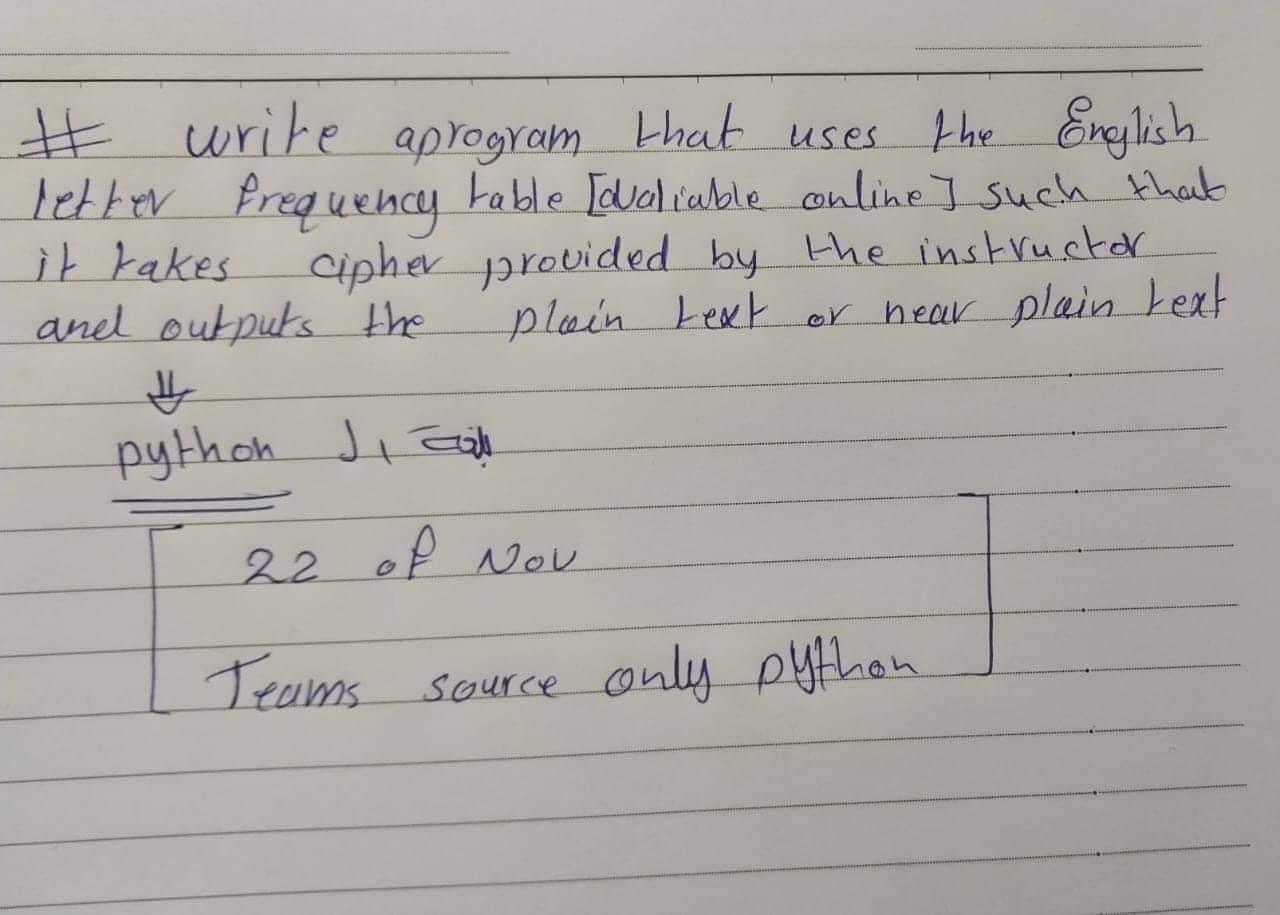 # write aprogram that uses the English
letter frequency table [avaliable online] such that
it takes cipher provided by the instructor
and outputs the plain text or near plain text
python
22 of Nov
Teams source only python